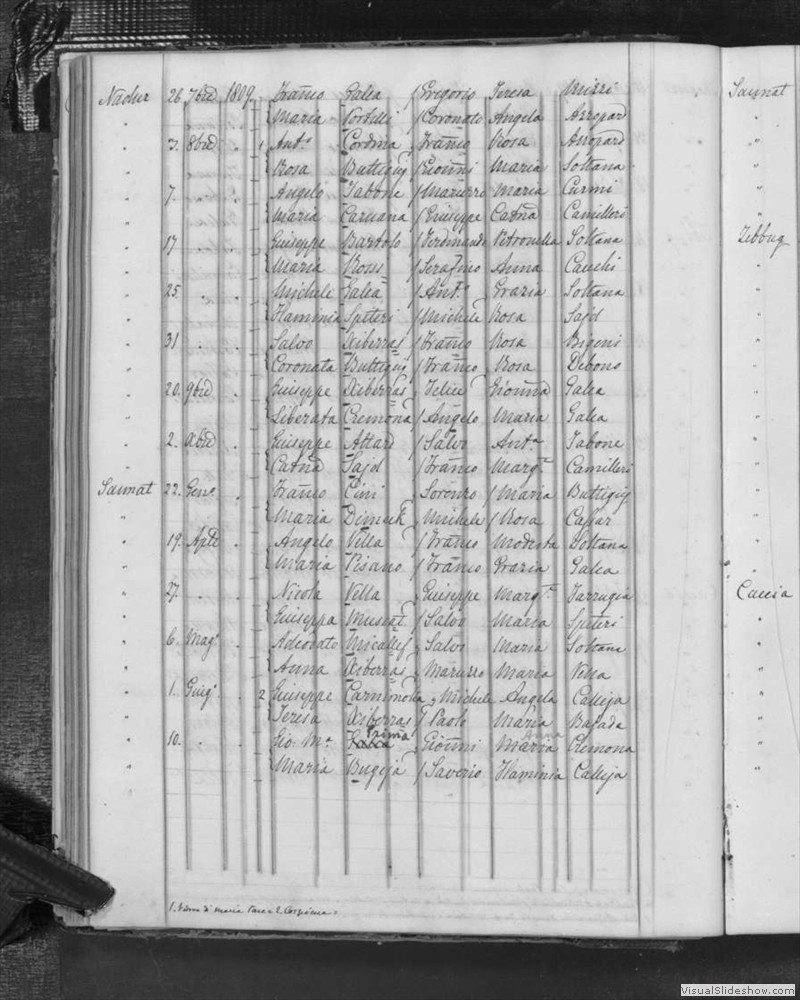 Nadur 26 7bre 1809 Franco Galea Gregorio Teresa Mizzi
" Maria Portelli Coronato Angela Azzopard
" 3. 8bre " 1 Ant.o Cordina Franco Rosa Azzopard
" Rosa Buttigieg Gioanni Maria Soltana
" 7. " " Angelo Tabone Maruzzo Maria Curmi
" Maria Caruana Giuseppe Catna Camilleri
" 17 " " Giuseppe Bartolo Ferdinando Petronella Soltana
" Maria Ross Serafino Anna Cauchi
" 25. " " Michele Galea Ant.o Grazia Soltana
" Flaminia Spiteri Michele Rosa Sajd
" 31 " " Salvo Xiberras Franco Rosa Bigeni
" Coronata Buttigieg Franco Rosa Debono
" 20. 9bre " Giuseppe Xiberras Felice Gioanna Galea
" Liberata Cremona Angelo Maria Galea
" 2. Xbre " Giuseppe Attard Salvo Ant.a Tabone
" Catna Sajd Franco Marg.ta Camilleri
Sannat 22. Gen.o " Franco Cini Lorenzo Maria Buttigieg
" Maria Dimech Michele Rosa Cassar
" 19. Aple " Angelo Vella Franco Modesta Soltana
" Maria Pisano Franco Grazia Galea
" 27. " " Nicola Vella Giuseppe Marg.ta Farrugia
" Giuseppa Muscat Salvo Maria Spiteri
" 6. Mag.o " Adeodato Micallef Salvo Maria Soltana
" Anna Xiberras Maruzzo Maria Vella
" 1. Giug.o " 2 Giuseppe Michele Angela Calleja
" Teresa Xiberras Paolo Maria Bajada
" 10. " " Gio: M.a Prima Gioanni Maria Anna Cremona
" Maria Bugeja Saverio Flaminia Calleja
Sannat
Zebbug
Caccia
VisualSlideshow.com